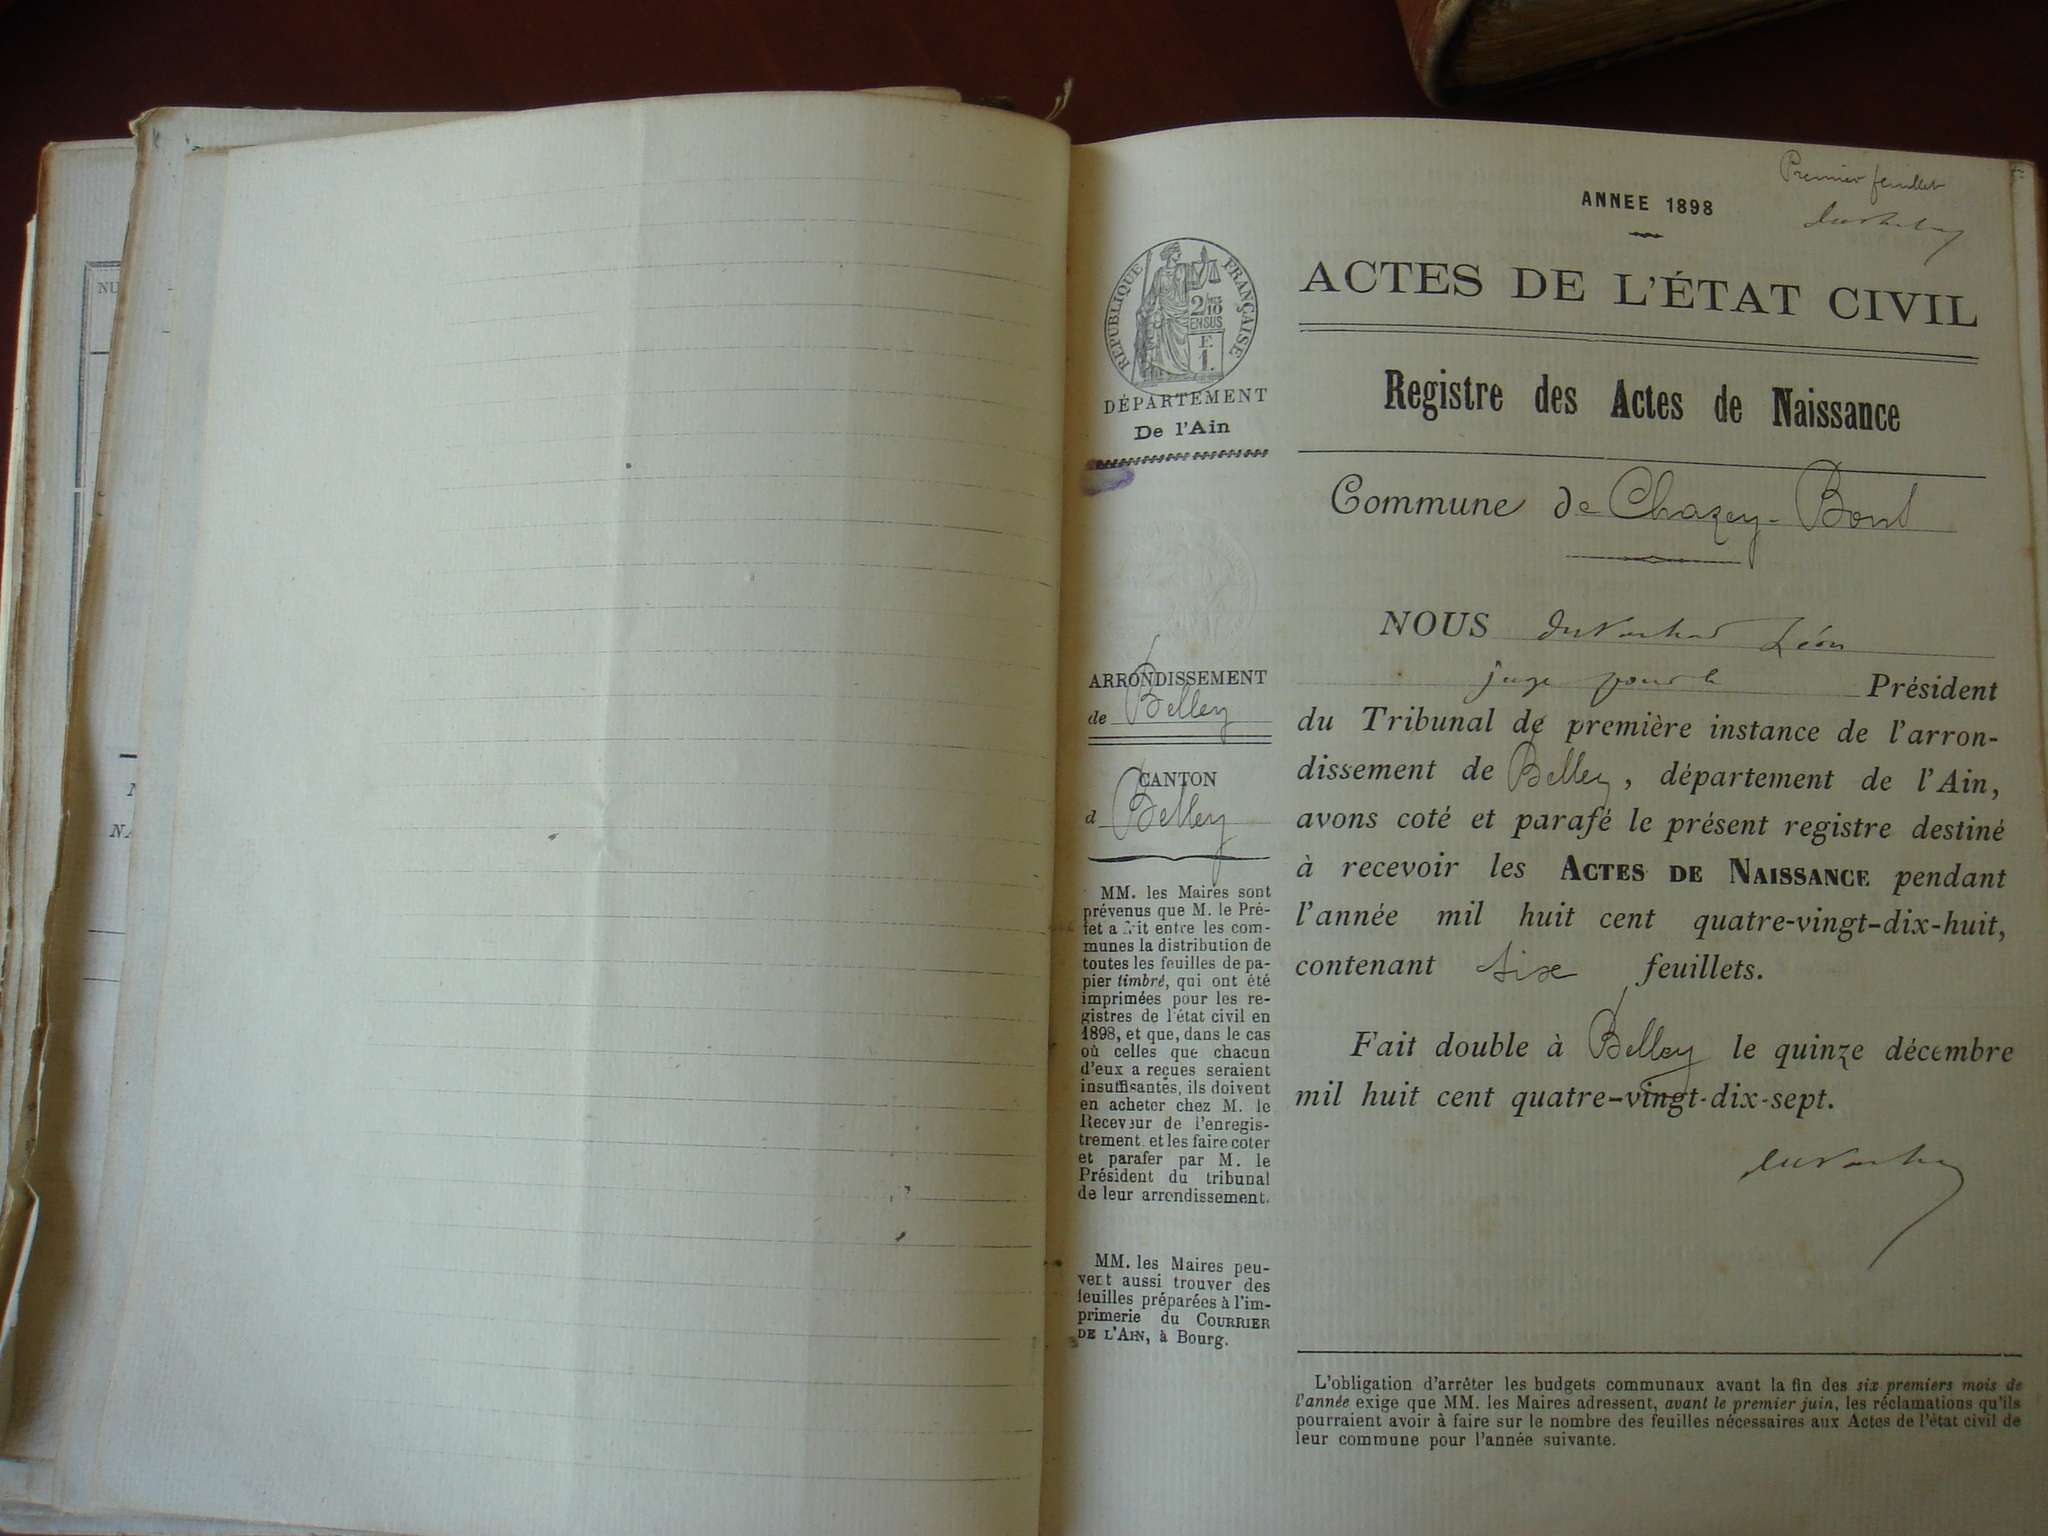 NU
N
NA
Premier feuillet
ANNEE 1898
ACTES DE L'ÉTAT CIVIL
Registre des Actes de Naissance
Commune de Chazey-Bons
RÉPUBLIQUE FRANÇAISE
2/10
EN SUS
F.
1.
DÉPARTEMENT
De l'Ain
ARRONDISSEMENT
de Belley
CANTON
d Belley
MM. les Maires sont
prévenus que M. le Pré-
fet a fait entre les com-
munes la distribution de
toutes les feuilles de pa-
pier timbré, qui ont été
imprimées pour les re-
gistres de l'état civil en
1898, et que, dans le cas
où celles que chacun
d'eux a reçues seraient
insuffisantes, ils doivent
en acheter chez M. le
Receveur de l'enregis-
trement et les faire coter
et parafer par M. le
Président du tribunal
de leur arrondissement.
MM. les Maires peu-
vent aussi trouver des
feuilles préparées à l'im-
primerie du COURRIER
DE L'AIN, à Bourg.
NOUS Léon
juge pour le Président
du Tribunal de première instance de l'arron-
dissement de Belley, département de l'Ain,
avons coté et parafé le présent registre destiné
à recevoir les ACTES DE NAISSANCE pendant
l'année mil huit cent quatre-vingt-dix-huit,
contenant six feuillets.
Fait double à Belley le quinze décembre
mil huit cent quatre-vingt-dix-sept.
L'obligation d'arrêter les budgets communaux avant la fin des six premiers mois de
l'année exige que MM. les Maires adressent, avant le premier juin, les réclamations qu'ils
pourraient avoir à faire sur le nombre des feuilles nécessaires aux Actes de l'état civil de
leur commune pour l'année suivante.